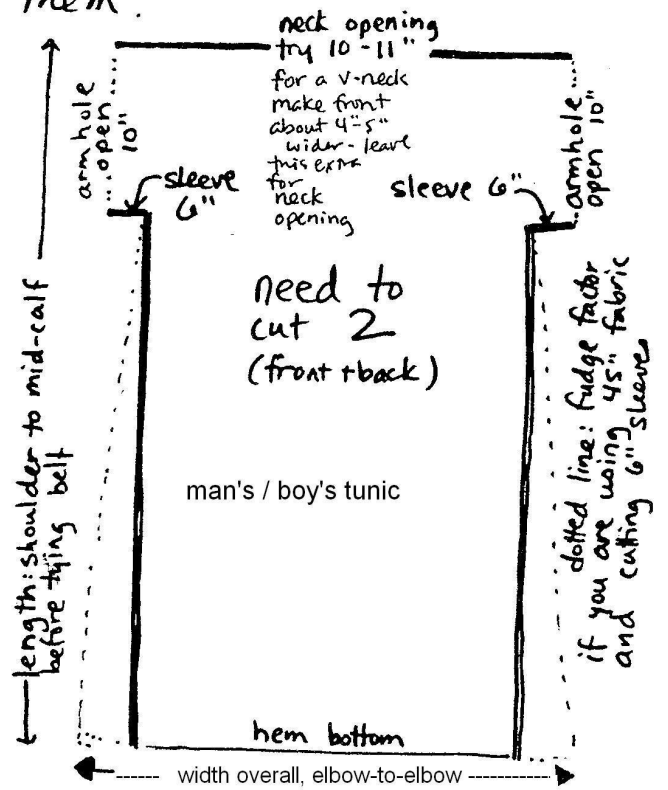 them.
neck opening
try 10-11"
for a v-neck
make front
about 4"-5"
wider - leave
this extra
for
neck
opening
armhole
open 10"
sleeve
6"
sleeve 6"
armhole
open 10"
need to
cut 2
(front + back)
man's / boy's tunic
length: shoulder to mid-calf
before tying belt
dotted line: fudge factor
if you are using 45" fabric
and cutting 6" sleeves
hem bottom
width overall, elbow-to-elbow